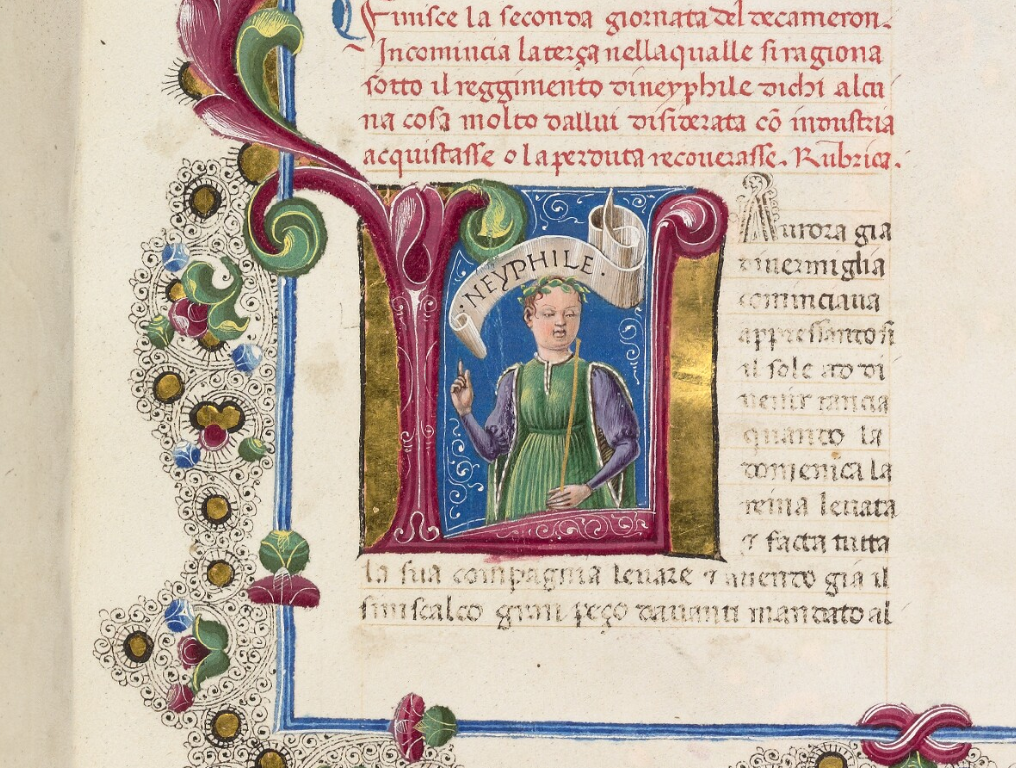 Finisce la seconda giornata del decameron.
Incomincia la terça nella qualle si ragiona
sotto il reggimento di neyphile di chi alcu
na cosa molto da llui disiderata cō industria
acquistasse o la perduta recouerasse. Rubrica.
L
·NEYPHILE·
Aurora gia
di uermiglia
cominciaua
appressandosi
il sole ad di
uenir rancia
quando la
domenica la
reina leuata
⁊ facta tutta
la sua compagnia leuare ⁊ auendo gia il
siniscalco gran peço dauanti mandato al